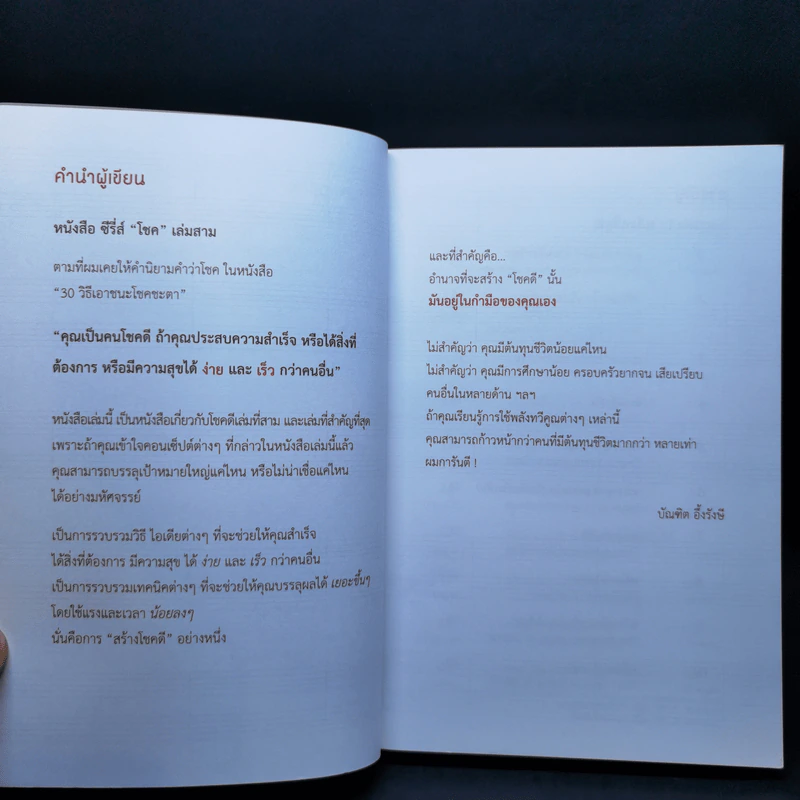 คำนำผู้เขียน
หนังสือ ซีรี่ส์ “โชค” เล่มสาม
ตามที่ผมเคยให้คำนิยามคำว่าโชค ในหนังสือ
“30 วิธีเอาชนะโชคชะตา”
“คุณเป็นคนโชคดี ถ้าคุณประสบความสำเร็จ หรือได้สิ่งที่
ต้องการ หรือมีความสุขได้ ง่าย และ เร็ว กว่าคนอื่น”
หนังสือเล่มนี้ เป็นหนังสือเกี่ยวกับโชคดีเล่มที่สาม และเล่มที่สำคัญที่สุด
เพราะถ้าคุณเข้าใจคอนเซ็ปต์ต่างๆ ที่กล่าวในหนังสือเล่มนี้แล้ว
คุณสามารถบรรลุเป้าหมายใหญ่แค่ไหน หรือไม่น่าเชื่อแค่ไหน
ได้อย่างมหัศจรรย์
เป็นการรวบรวมวิธี ไอเดียต่างๆ ที่จะช่วยให้คุณสำเร็จ
ได้สิ่งที่ต้องการ มีความสุข ได้ ง่าย และ เร็ว กว่าคนอื่น
เป็นการรวบรวมเทคนิคต่างๆ ที่จะช่วยให้คุณบรรลุผลได้ เยอะขึ้นๆ
โดยใช้แรงและเวลา น้อยลงๆ
นั่นคือการ “สร้างโชคดี” อย่างหนึ่ง
และที่สำคัญคือ...
อำนาจที่จะสร้าง “โชคดี” นั้น
มันอยู่ในกำมือของคุณเอง
ไม่สำคัญว่า คุณมีต้นทุนชีวิตน้อยแค่ไหน
ไม่สำคัญว่า คุณมีการศึกษาน้อย ครอบครัวยากจน เสียเปรียบ
คนอื่นในหลายด้าน ฯลฯ
ถ้าคุณเรียนรู้การใช้พลังทวีคูณต่างๆ เหล่านี้
คุณสามารถก้าวหน้ากว่าคนที่มีต้นทุนชีวิตมากกว่า หลายเท่า
ผมการันตี !
บัณฑิต อึ้งรังษี